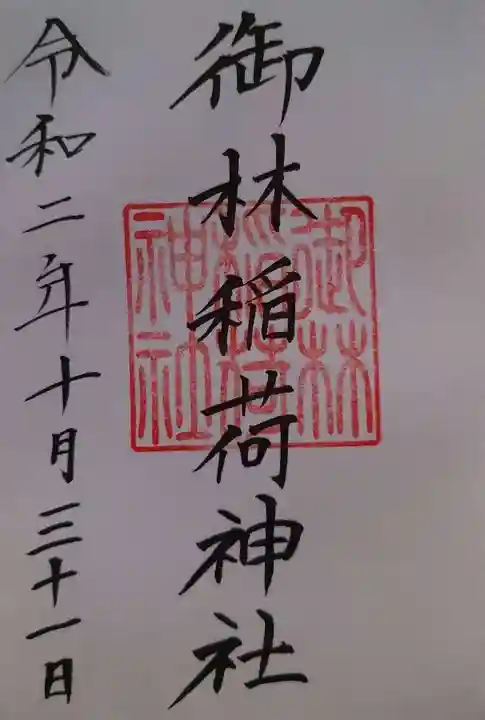 御林稲荷神社
御林
稲荷
神社
令和二年十月三十一日